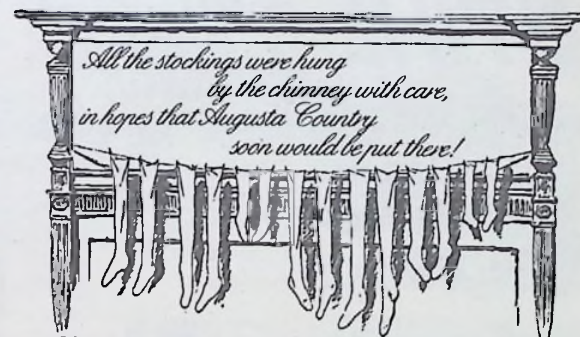 All the stockings were hung
by the chimney with care,
in hopes that Augusta Country
soon would be put there!